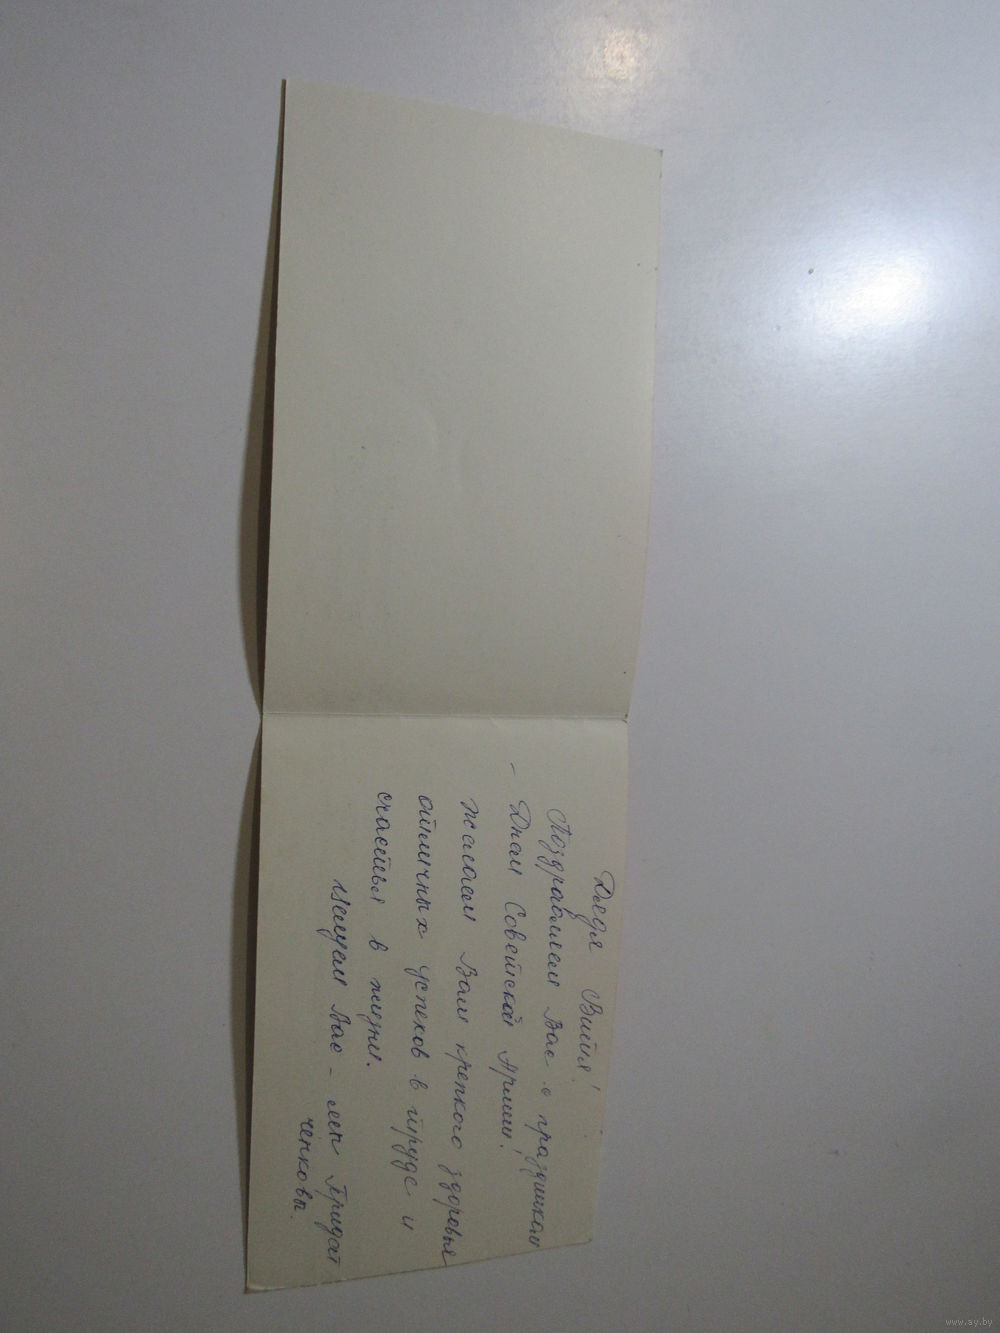 Дядя Витя!
Поздравляем Вас с праздником
- Днём Советской Армии!
Желаем Вам крепкого здоровья
отличных успехов в труде и
счастья в жизни.
Целуем Вас -
ченковы.
www.ay.by